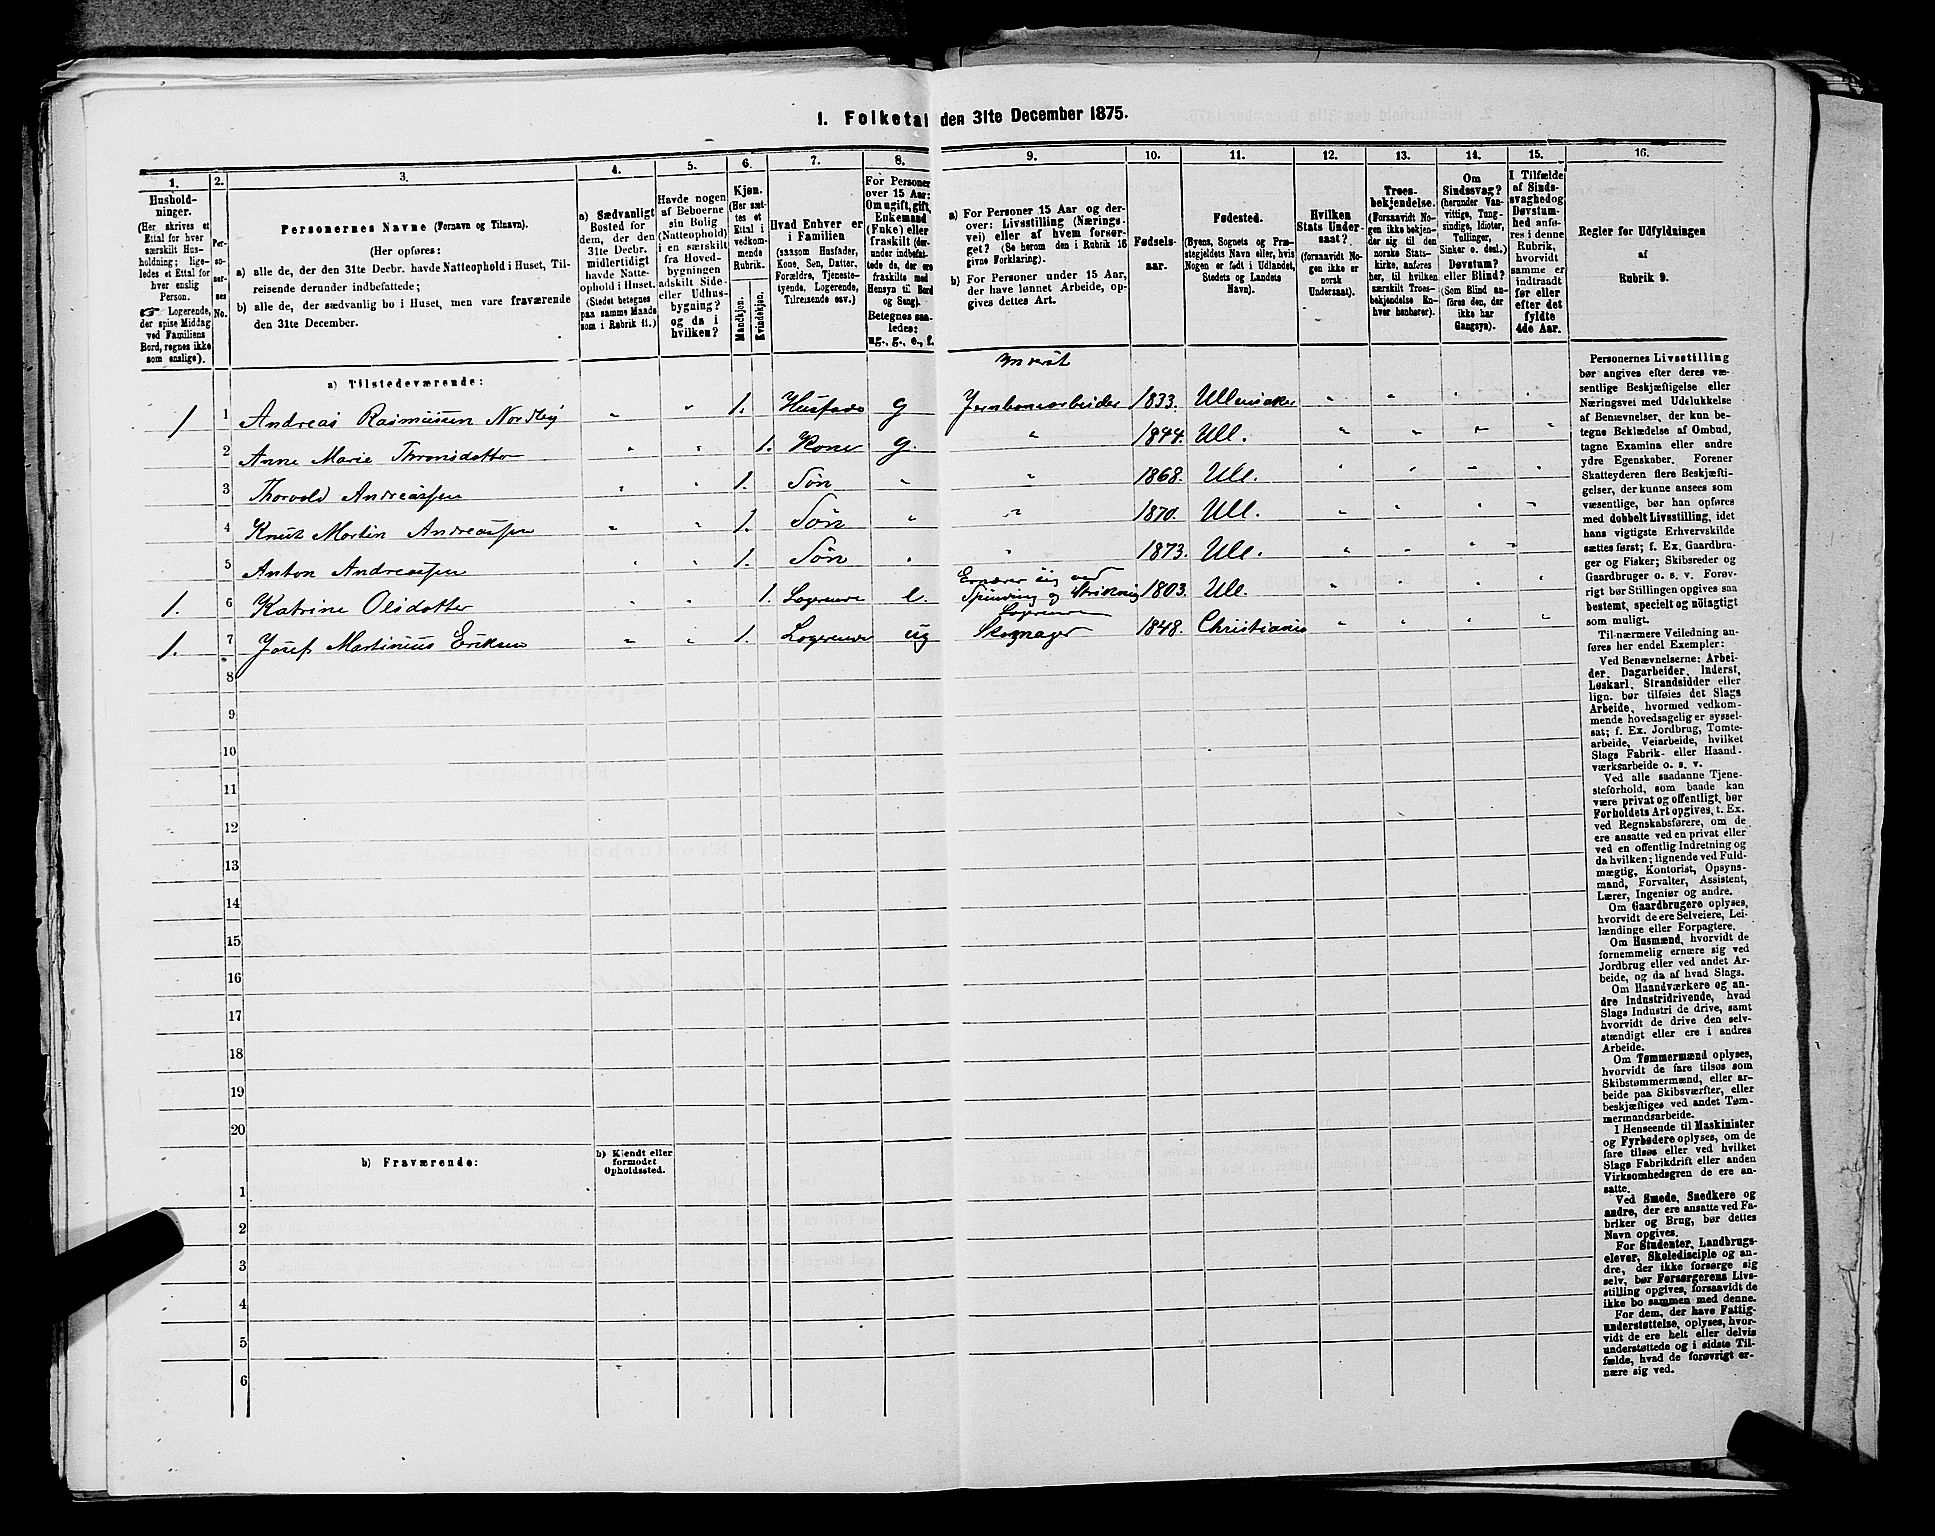 1. Folketal den 31te December 1875.
1. 2. 3. 4. 5. 6. 7. 8. 9. 10. 11. 12. 13. 14. 15. 16.
Hushold-
ninger.
(Her skrives et
Ettal for hver
særskilt Hus-
holdning; lige-
ledes et Ettal for
hver enslig
Person.
☞ Logerende,
der spise Middag
ved Familiens
Bord, regnes ikke
som enslige).
Per-
so-
ner-
nes
No.
Personernes Navne (Fornavn og Tilnavn).
(Her opføres:
a) alle de, der den 31te Decbr. havde Natteophold i Huset, Til-
reisende derunder indbefattede;
b) alle de, der sædvanlig bo i Huset, men vare fraværende
den 31te December.
a) Sædvanligt
Bosted for
dem, der den
31te Decbr.
midlertidigt
havde Natte-
ophold i Huset.
(Stedet betegnes
paa samme Maade
som i Rubrik 11.)
Havde nogen
af Beboerne
sin Bolig
(Natteophold)
i en særskilt
fra Hoved-
bygningen
adskilt Side-
eller Udhus-
bygning?
og da i
hvilken?
Kjøn.
(Her sæt-
tes et
Ettal i
vedkom-
mende
Rubrik.
Mandkjøn.
Kvindekjøn.
Hvad Enhver er
i Familien
(saasom Husfader,
Kone, Søn, Datter,
Forældre, Tjeneste-
tyende, Logerende,
Tilreisende osv.)
For Personer
over 15 Aar:
Om ugift, gift,
Enkemand
(Enke) eller
fraskilt (der-
under indbefat-
tede de, der ere
fraskilte med
Hensyn til Bord
og Seng).
Betegnes saa-
ledes:
ug., g., e., f.
a) For Personer 15 Aar og der-
over: Livsstilling (Nærings-
vei) eller af hvem forsør-
get? (Se herom den i Rubrik 16
givne Forklaring).
b) For Personer under 15 Aar,
der have lønnet Arbeide, op-
gives dettes Art.
Fødsels-
aar.
Fødested.
(Byens, Sognets og Præ-
stegjeldets Navn eller, hvis
Nogen er født i Udlandet,
Stedets og Landets
Navn).
Hvilken
Stats Under-
saat?
(forsaavidt No-
gen ikke er
norsk
Undersaat).
Troes-
bekjendelse.
(Forsaavidt No-
gen ikke bekjen-
der sig til den
norske Stats-
kirke, anføres
her, til hvilken
særskilt Troes-
bekjendelse En-
hver henhører).
Om
Sindssvag?
(herunder Van-
vittige, Tung-
sindige, Idioter,
Tullinger,
Sinker o. desl.)
Døvstum?
eller Blind?
(Som Blind an-
føres den, der
ikke har
Gangsyn).
I Tilfælde
af Sinds-
svaghed og
Døvstum-
hed anfø-
res i denne
Rubrik,
hvorvidt
samme er
indtraadt
før eller
efter det
fyldte
4de Aar.
Regler for Udfyldningen
af
Rubrik 9.
a) Tilstedeværende:
Inderst
1 1 Andreas Rasmussen Nordby „ „ 1. Husfader g Jernbanearbeider 1833. Ullensaker „ „ „ „
2 Anne Marie Thronsdatter „ „ 1. Kone g. „ 1844. Ull. „ „ „ „
3 Thorvald Andreassen „ „ 1. Søn „ „ 1868. Ull. „ „ „ „
4 Knut Martin Andreassen „ „ 1. Søn „ „ 1870. Ull. „ „ „ „
5 Anton Andreassen „ „ 1. Søn „ „ 1873. Ull. „ „ „ „
Ernærer sig ved
1. 6 Katrine Olsdatter „ „ 1. Logerende e. Spinding og Strikning 1803. Ull. „ „ „ „
Logerende
1. 7 Josef Martinius Eriksen „ „ 1. Logerende ug Skomager 1848. Christiania „ „ „ „
8
9
10
11
12
13
14
15
16
17
18
19
20
b) Fraværende:
b) Kjendt eller
formodet
Opholdssted.
1
2
3
4
5
6
Personernes Livsstilling
bør angives efter deres væ-
sentlige Beskjæftigelse eller
Næringsvei med Udelukkelse
af Benævnelser, der kun be-
tegne Beklædelse af Ombud,
tagne Examina eller andre
ydre Egenskaber. Forener
Skatteyderen flere Beskjæfti-
gelser, der kunne ansees som
væsentlige, bør han opføres
med dobbelt Livsstilling, idet
hans vigtigste Erhvervskilde
sættes først; f. Ex. Gaardbru-
ger og Fisker; Skibsreder og
Gaardbruger o. s. v. Forøv-
rigt bør Stillingen opgives saa
bestemt, specielt og nöiagtigt
som muligt.
Til nærmere Veiledning an-
føres her endel Exempler:
Ved Benævnelserne: Arbei-
der, Dagarbeider, Inderst,
Løskarl, Strandsidder eller
lign. bør tilføies det Slags
Arbeide, hvormed vedkom-
mende hovedsagelig er syssel-
sat; f. Ex. Jordbrug, Tomte-
arbeide, Veiarbeide, hvilket
Slags Fabrik- eller Haand-
værksarbeide o. s. v.
Ved alle saadanne Tjene-
steforhold, som baade kan
være privat og offentligt, bør
Forholdets Art opgives, t. Ex.
ved Regnskabsførere, om de
ere ansatte ved en privat eller
ved en offentlig Indretning og
da hvilken; lignende ved Fuld-
mægtig, Kontorist, Opsyns-
mand, Forvalter, Assistent,
Lærer, Ingeniør og andre.
Om Gaardbrugere oplyses,
hvorvidt de ere Selveiere, Lei-
lændinge eller Forpagtere.
Om Husmænd, hvorvidt de
fornemmelig ernære sig ved
Jordbrug eller ved andet Ar-
beide, og da af hvad Slags.
Om Haandværkere og an-
dre Industridrivende, hvad
Slags Industri de drive, samt
hvorvidt de drive den selv-
stændigt eller ere i andres
Arbeide.
Om Tømmermænd oplyses,
hvorvidt de fare tilsøs som
Skibstømmermænd, eller ar-
beide paa Skibsværfter, eller
beskjæftiges ved andet Tøm-
mermandsarbeide.
I Henseende til Maskinister
og Fyrbødere oplyses, om de
fare tilsøs eller ved hvilket
Slags Fabrikdrift eller anden
Virksomhedsgren de ere an-
satte.
Ved Smede, Snedkere og
andre, der ere ansatte ved Fa-
briker og Brug, bør dettes
Navn opgives.
For Studenter, Landbrugs-
elever, Skoledisciple og an-
dre, der ikke forsørge sig
selv, bør Forsørgerens Livs-
stilling opgives, forsaavidt de
ikke bo sammen med denne.
For dem, der have Fattig-
understøttelse, oplyses, hvor-
vidt de ere helt eller delvis
understøttede og i sidste Til-
fælde, hvad de forøvrigt er-
nære sig ved.